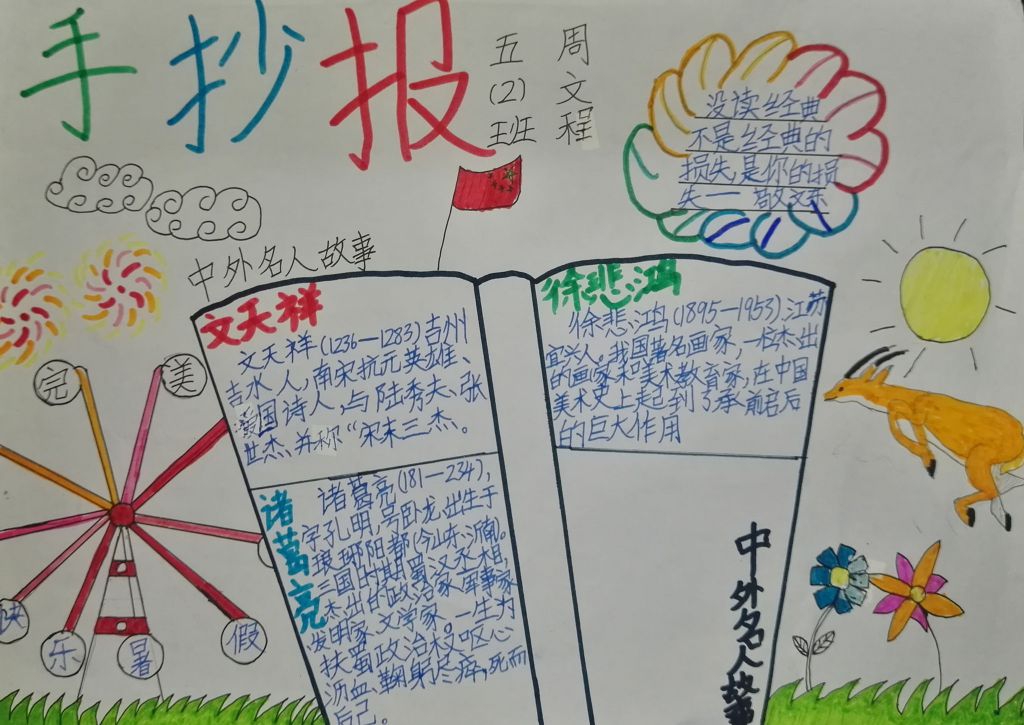 手抄报
五
(2)
班
周
文
程
没读经典
不是经典的
损失,是你的损
失——
中外名人故事
文天祥
文天祥(1236—1283)吉州
吉水人,南宋抗元英雄、
爱国诗人,与陆秀夫、张
世杰,并称“宋末三杰。
诸葛亮
诸葛亮(181—234),
字孔明,号卧龙,出生于
琅琊阳都(今山东沂南)。
三国时期蜀汉丞相
杰出的政治家、军事家
发明家、文学家。一生为
扶蜀政治术又呕心
沥血、鞠躬尽瘁,死而
后已。
徐悲鸿
徐悲鸿(1895—1953),江苏
宜兴人。我国著名画家,一位杰出
的画家和美术教育家,在中国
美术史上起到了承前启后
的巨大作用
中外名人故事
完
美
快
乐
暑
假